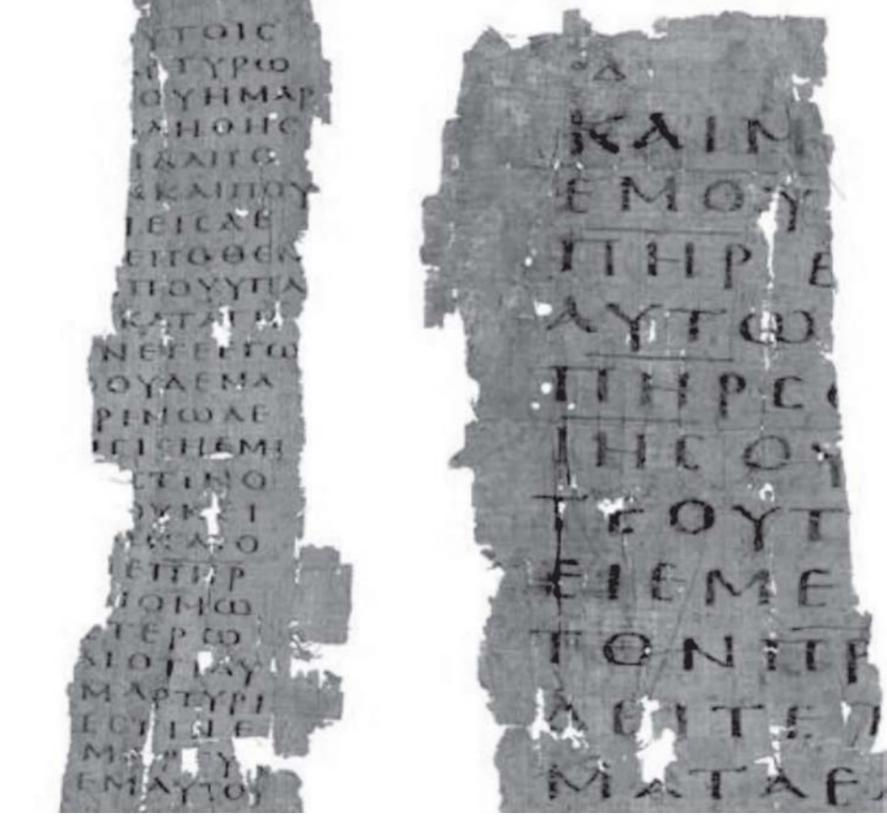 ΥΤΟΙϹ
ΡΤΥΡΩ
ΟΥΗΜΑΡ
ΛΗΘΗϹ
ΙΔΑΠΟ
ΚΑΙΠΟΥ
ΕΙϹΔΕ
ΕΠΟΘΕΝ
ΠΟΥΥΠΑ
ΚΑΤΑΤΗ
ΝΕΤΕΕΓΩ
ΟΥΔΕΝΑ
ΡΙΝΩΔΕ
ϹΙϹΗΕΜΗ
ϹΤΙΝΟ
ΟΥΚΕΙ
ΕΠΗΡ
ΝΟΜΩ
ΤΕΡΩ
ΜΑΡΤΥΡΙ
ΕϹΤΙΝΕ
ΕΜΑΥΤΟΥ
ΟΔ
ΚΑΙΜ
ΕΜΟΥ
ΠΗΡ Ε
ΑΥΤΩ
ΠΗΡϹΟ
ΙΗϹΟΥ
ΤΕΟΥΤ
ΕΙΕΜΕ
ΤΟΝΠΡ
ΔΕΙΤΕΤ
ΜΑΤΑΕ